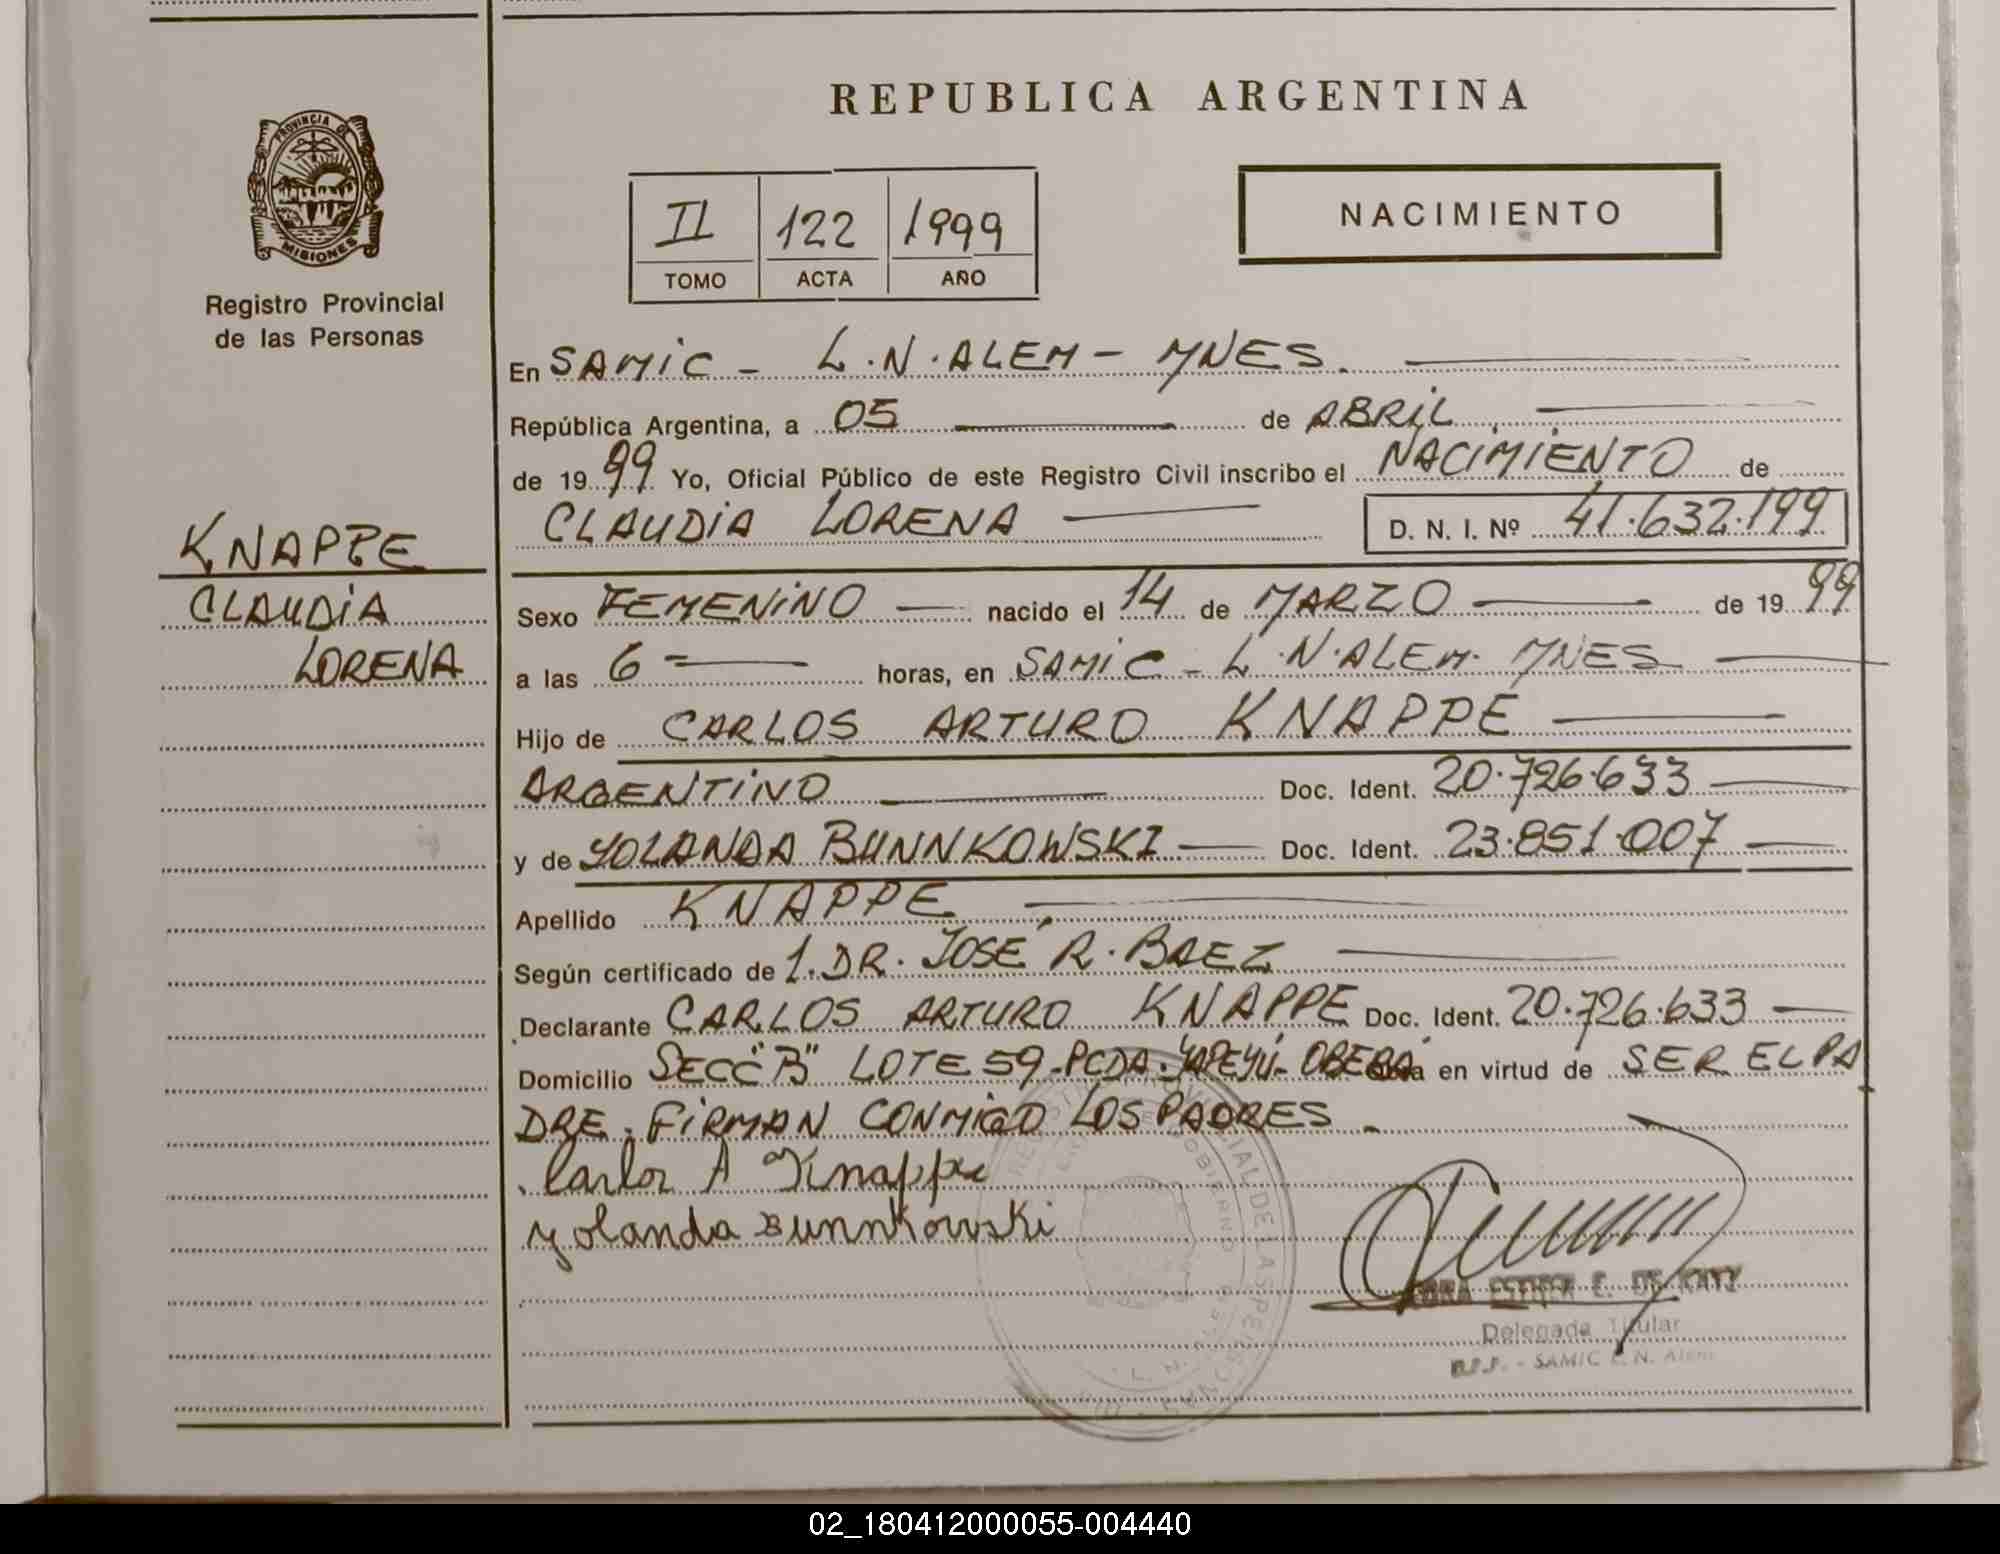 REPUBLICA ARGENTINA
PROVINCIA DE
MISIONES
Registro Provincial
de las Personas
II 122 1999
TOMO ACTA AÑO
NACIMIENTO
KNAPPE
CLAUDIA
LORENA
En SAMIC - L.N. ALEM - MNES.
República Argentina, a 05 de ABRIL
de 1999 Yo, Oficial Público de este Registro Civil inscribo el NACIMIENTO de
CLAUDIA LORENA D. N. I. Nº 41.632.199
Sexo FEMENINO nacido el 14 de MARZO de 1999
a las 6 = horas, en SAMIC - L.N. ALEM. MNES
Hijo de CARLOS ARTURO KNAPPE
ARGENTINO Doc. Ident. 20.726.633
y de YOLANDA BUNNKOWSKI Doc. Ident. 23.851.007
Apellido KNAPPE
Según certificado de 1. DR. JOSÉ R. BAEZ
Declarante CARLOS ARTURO KNAPPE Doc. Ident. 20.726.633
Domicilio SECC "B" LOTE 59 - PCDA. YAPEYÚ - OBERA en virtud de SER EL PA
DRE. FIRMAN CONMIGO LOS PADRES.
Carlos A Knappe
Yolanda Bunnkowski
ESTHER E. DE KATZ
Delegada Titular
R.P.P. - SAMIC L.N. Alem
02_180412000055-004440